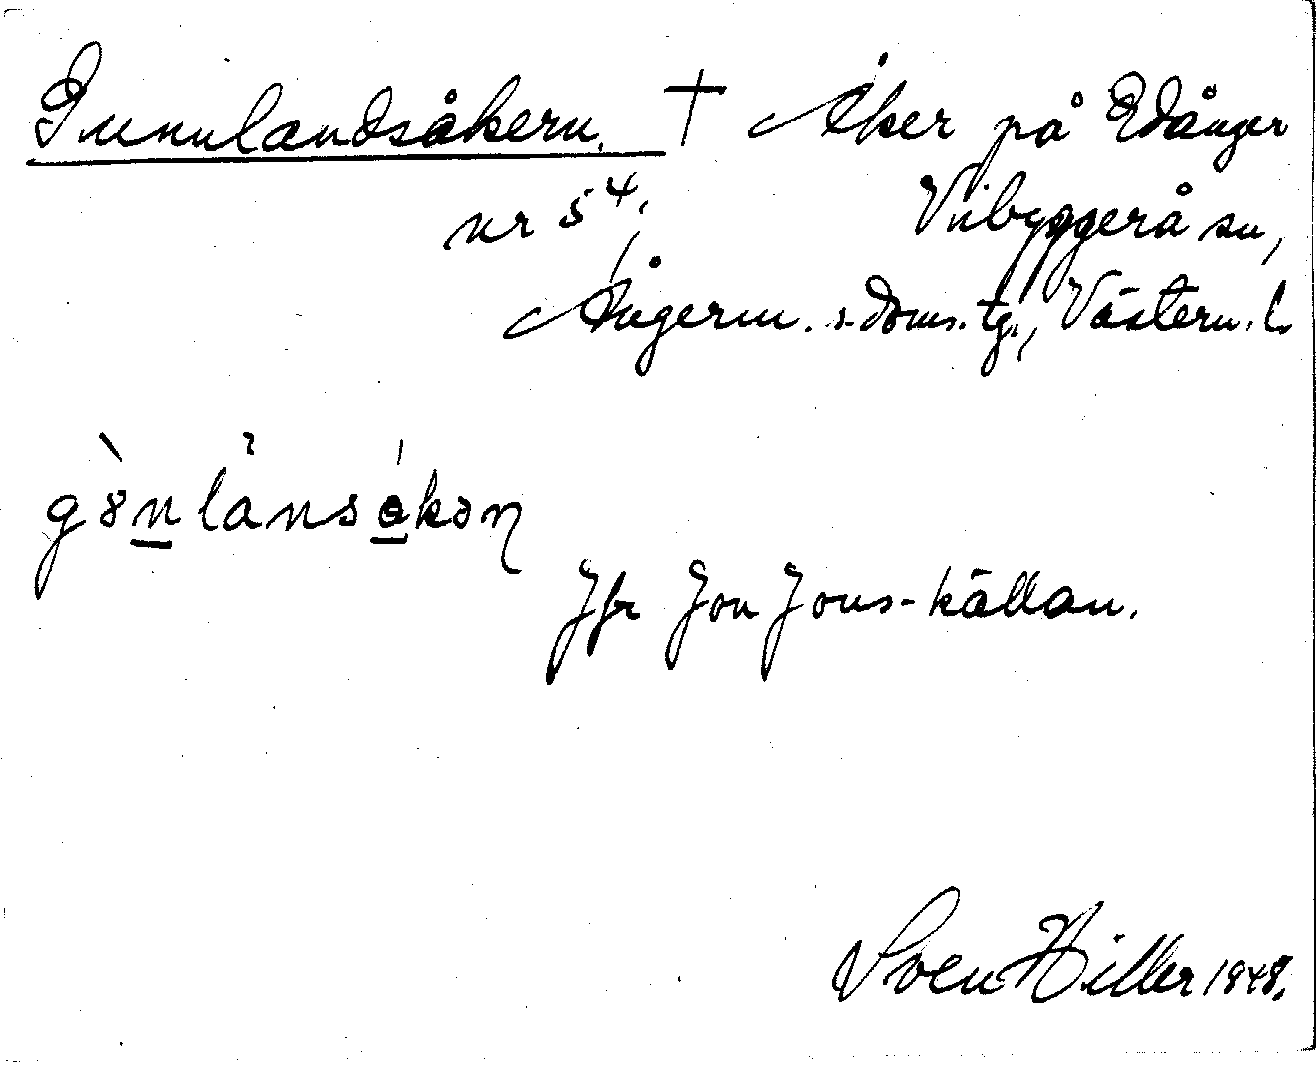 Gunnlandsåkern. † Åker på Edånger
nr 5⁴, Vibyggerå sn,
Ångerm. s. doms. tg., Västern. l.
gö̀nlånsákəņ
Jfr Jon Jons-källan.
Sven Hiller 1948.